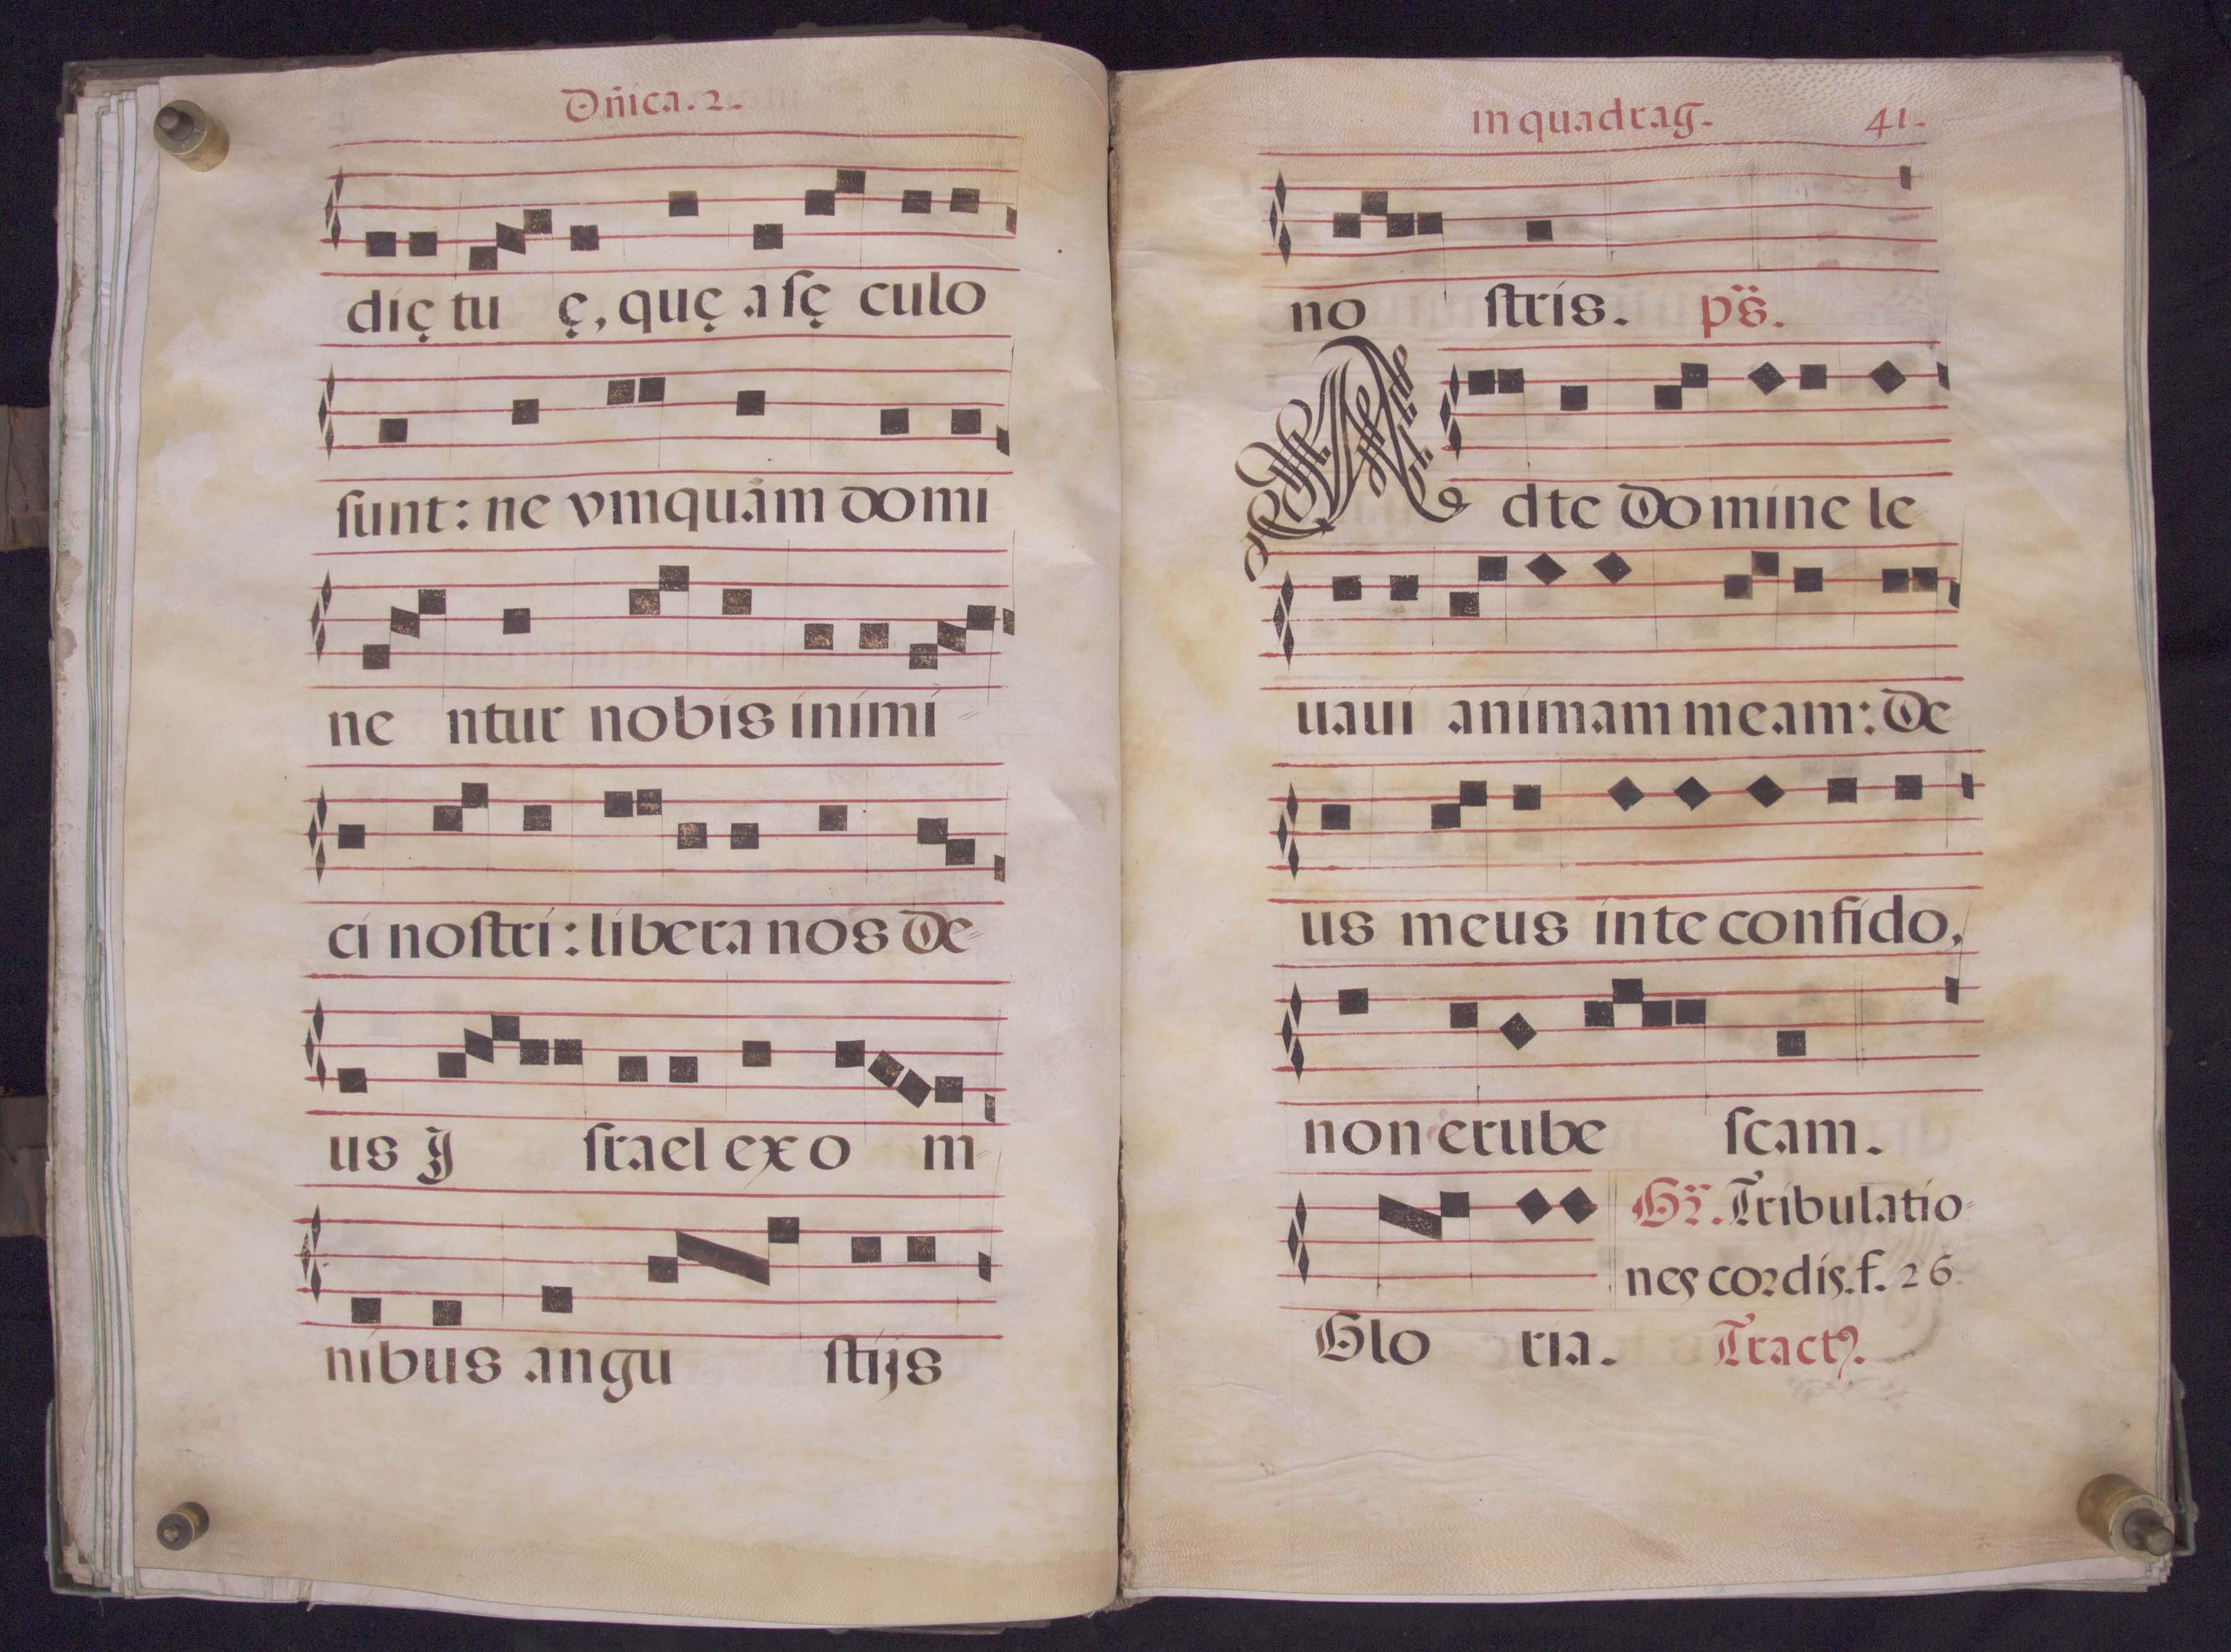 Dñica. 2.
dię tu ę, quę a ſę culo
ſunt: ne vmquam domi
ne ntur nobis inimi
ci noſtri: libera nos De
us J ſrael ex o m
nibus angu ſtijs
in quadrag. 41.
no ſtris. ps̈.
Ad te Domine le
uaui animam meam: De
us meus in te confido,
non erube ſcam.
Gr̈. Tribulatio
nes cordis. f. 26.
Glo ria. Tractꝰ.